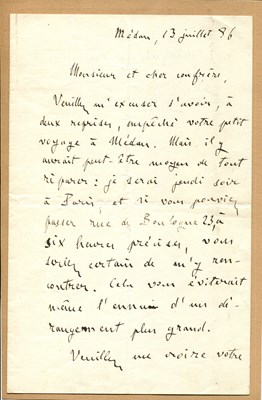 Médan, 13 juillet 86
Monsieur et cher confrère,
Veuillez m'excuser d'avoir, à
deux reprises, empêché votre petit
voyage à Médan. Mais il y
aurait peut-être moyen de tout
réparer : je serai jeudi soir
à Paris, et si vous pouviez
passer rue de Boulogne 23, à
six heures précises, vous
seriez certain de m'y ren-
contrer. Cela vous éviterait
même l'ennui d'un dé-
rangement plus grand.
Veuillez me croire votre